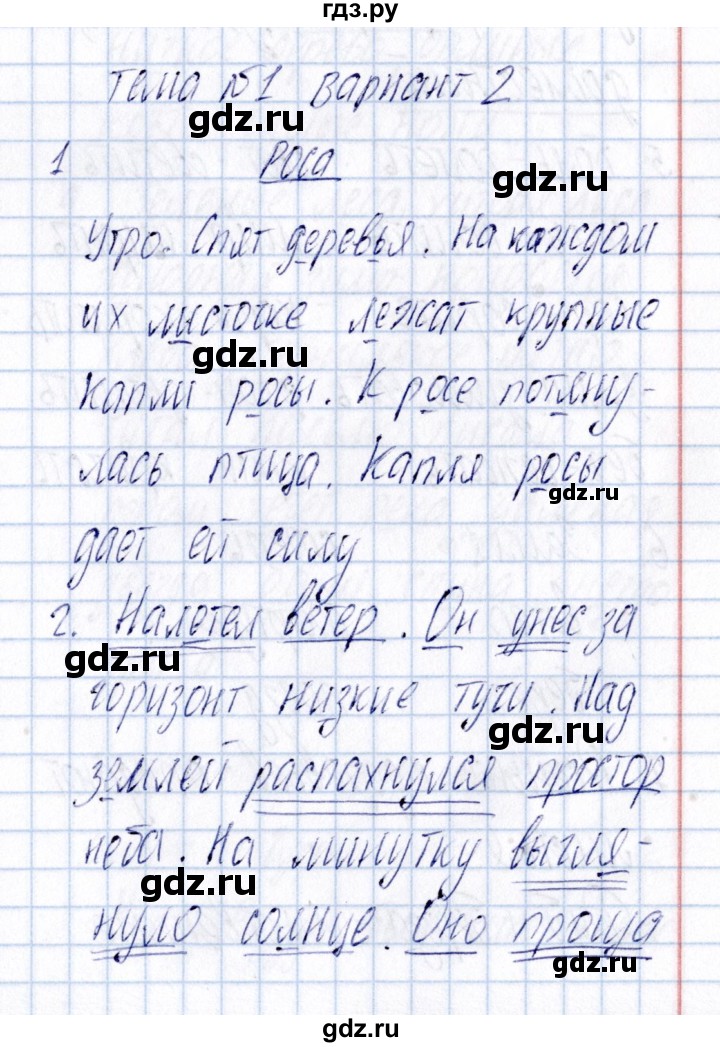 гдз.ру
тема №1 вариант 2
gdz.ru
1 Роса
gdz.ru
Утро. Спят деревья. На каждом
их листочке лежат крупные
gdz.ru
капли росы. К росе потяну-
лась птица. Капля росы
gdz.ru
дает ей силу
2. Налетел ветер. Он унес за
gdz.ru
горизонт низкие тучи. Над
gdz.ru
землей распахнулся простор
неба. На минутку выгля-
gdz.ru
нуло солнце. Оно проща
gdz.ru
gdz.ru